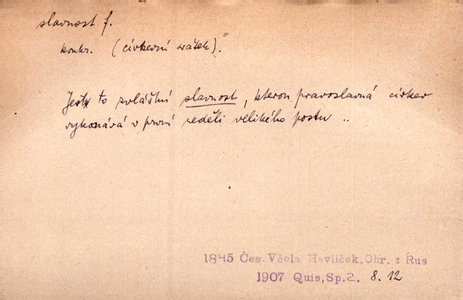 slavnost f.
konkr. (církevní svátek).
Jestiť to zvláštní slavnost, kterou pravoslavná církev
vykonává v první neděli velikého postu ..
1845 Čes. Včela Havlíček, Obr. z Rus
1907 Quis, Sp.2. 8.12